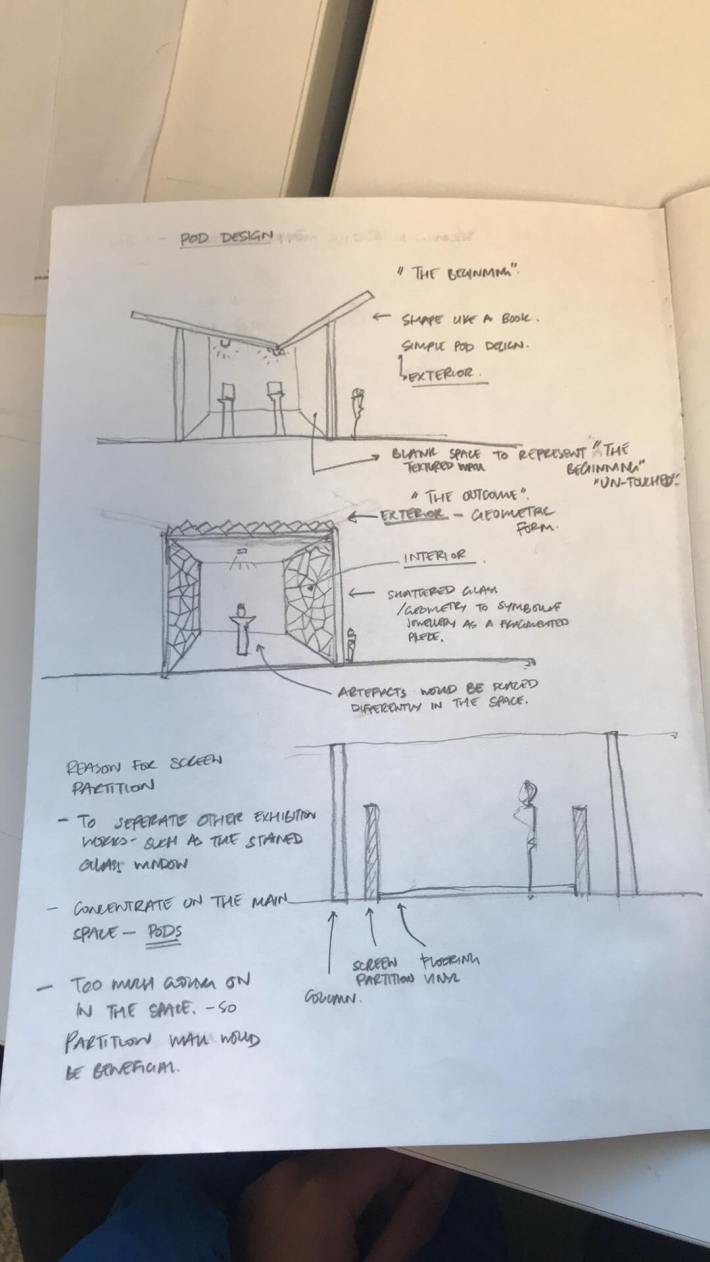 POD DESIGN
"THE BEGINNING".
SHAPE LIKE A BOOK.
SIMPLE POD DESIGN.
EXTERIOR.
BLANK SPACE TO REPRESENT "THE
TEXTURED WALL
BEGINNING"
"UN-TOUCHED".
"THE OUTCOME".
EXTERIOR - GEOMETRIC
FORM.
INTERIOR
SHATTERED GLASS
/GEOMETRY TO SYMBOLISE
JEWELLERY AS A FRAGMENTED
PIECE.
ARTEFACTS WOULD BE PLACED
DIFFERENTLY IN THE SPACE.
REASON FOR SCREEN
PARTITION
- TO SEPERATE OTHER EXHIBITION
WORKS - SUCH AS THE STAINED
GLASS WINDOW
- CONCENTRATE ON THE MAIN
SPACE - PODS
- TOO MUCH GOING ON
IN THE SPACE. - SO
PARTITION WALL WOULD
BE BENEFICIAL.
COLUMN.
SCREEN
PARTITION
FLOORING
VINYL